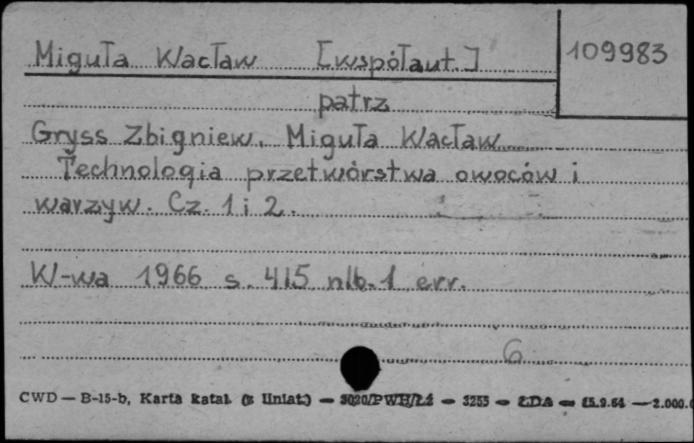 Miguła Wacław [współaut.] 109983
patrz
Gryss Zbigniew, Miguła Wacław
Technologia przetwórstwa owoców i
warzyw. Cz. 1 i 2.
W-wa 1966 s. 415 nlb. 1 err.
6
CWD — B-15-b, Karta katal. (z liniat.) — 3020/PWH/Łź — 3255 — ŁDA — 15.9.64 — 2.000.0